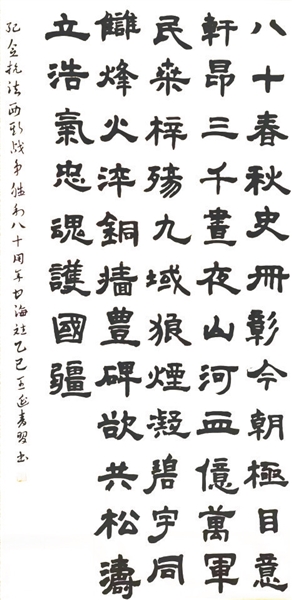 八十春秋史冊彰今朝極目意
軒昂三千晝夜山河血億萬軍
民桑梓殤九域狼煙凝碧宇同
讎烽火淬銅墻豐碑欲共松濤
立浩氣忠魂護國疆
纪念抗法西斯战争胜利八十周年海乙巳王延书